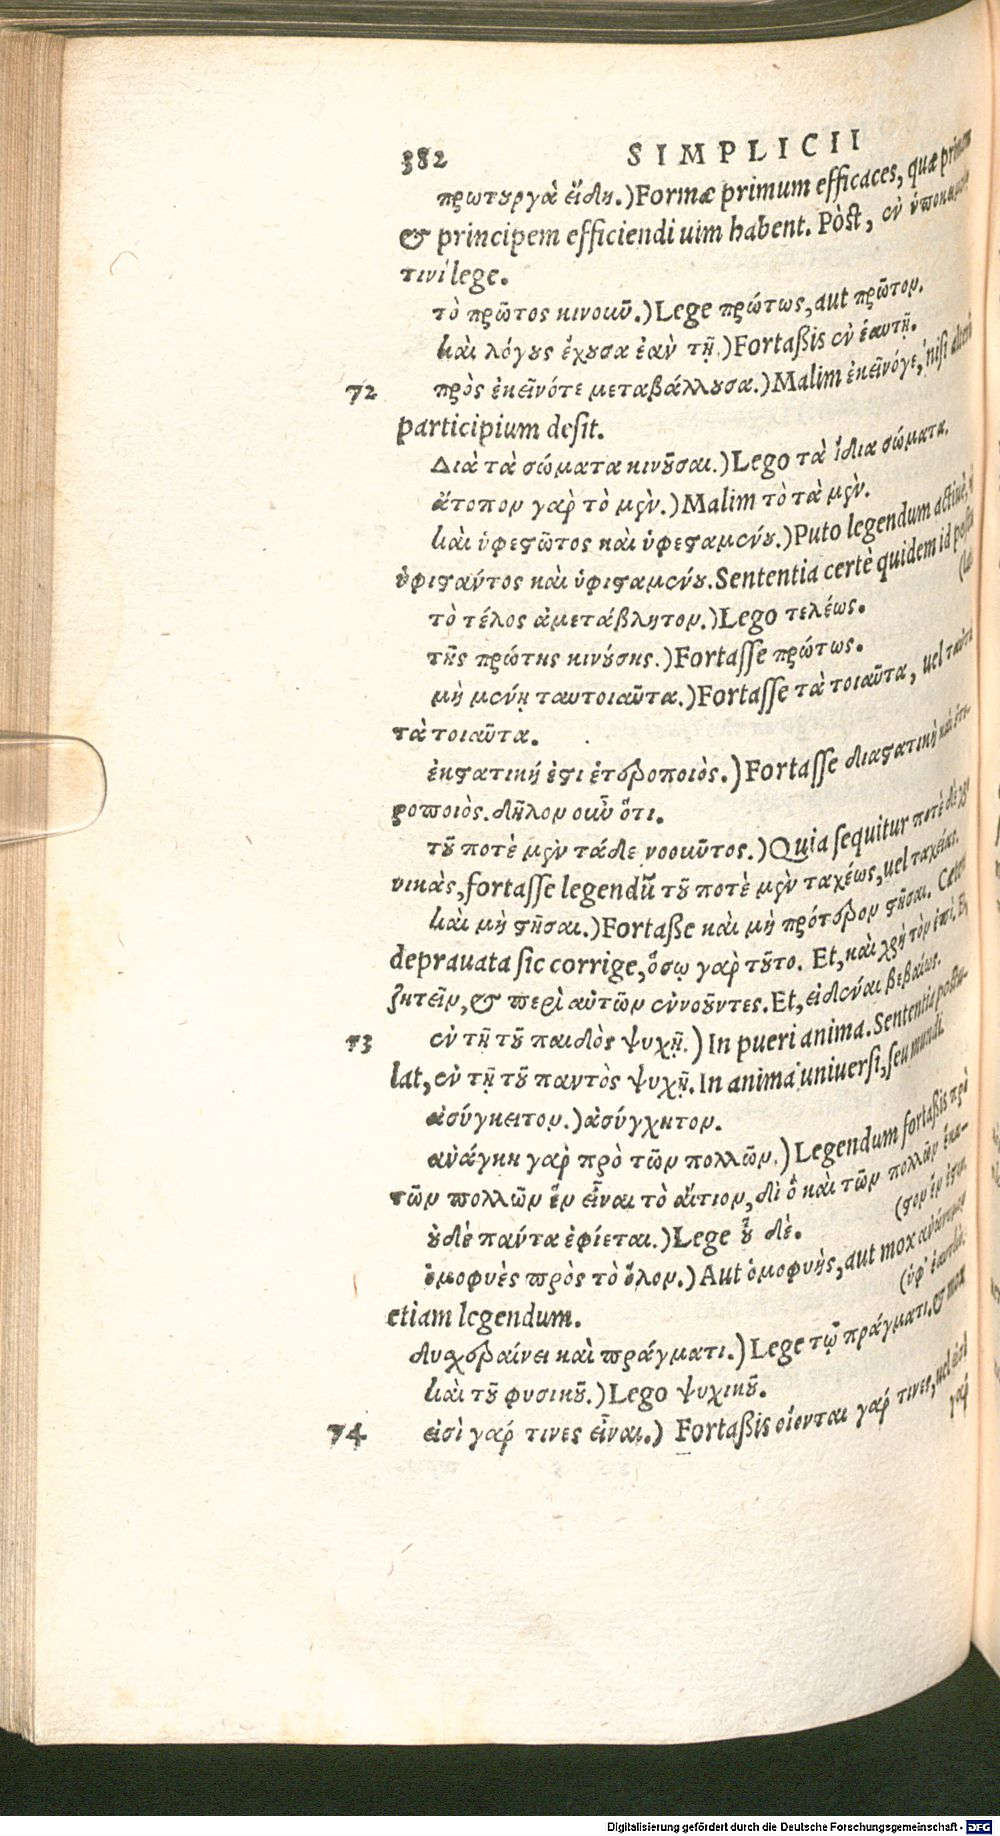 382 SIMPLICII
πρωτουργὰ εἴδη.) Formæ primum efficaces, quæ primam
& principem efficiendi uim habent. Pòst, ἐν ὑποκειμένῳ
τινὶ lege.
τὸ πρῶτος κινοιῦ.) Lege πρώτως, aut πρῶτον.
καὶ λόγους ἔχουσα ἐὰν τῇ.) Fortaßis ἐν ἑαυτῇ.
72 πρὸς ἐκεῖνότε μεταβάλλουσα.) Malim ἐκεῖνόγε, nisi alterū
participium desit.
Διὰ τὰ σώματα κινοῦσαι.) Lego τὰ ἴδια σώματα.
ἄτοπον γὰρ τὸ μὲν.) Malim τὸ τὰ μὲν.
καὶ ὑφεστῶτος καὶ ὑφεσταμένου.) Puto legendum actiuè,
ὑφιστάντος καὶ ὑφισταμένου. Sententia certè quidem id
τὸ τέλος ἀμετάβλητον.) Lego τελέως.
τῆς πρώτης κινήσης.) Fortasse πρώτως.
μὴ μένῃ ταυτοιαῦτα.) Fortasse τὰ τοιαῦτα, uel ταῦτα
τὰ τοιαῦτα.
ἐκστατική ἐστι ἑτεροποιὸς.) Fortasse διαστατικὴ καὶ ἑτε-
ροποιὸς. δῆλον οὖν ὅτι.
τοῦ ποτὲ μὲν τάδε νοοιῦτος.) Quia sequitur ποτὲ δὲ
νικὰς, fortasse legendū τοῦ ποτὲ μὲν ταχέως, uel ταχείας.
καὶ μὴ στῆσαι.) Fortaße καὶ μὴ πρότερον στῆσαι. Cætera
deprauata sic corrige, ὅσῳ γὰρ τοῦτο. Et, καὶ χρὴ τὸν ἐπὶ. Et
ζητεῖν, & περὶ αὐτῶν ἐννοοῦντες. Et, εἰδέναι βεβαίως.
73 ἐν τῇ τοῦ παιδὸς ψυχῇ.) In pueri anima. Sententia postu-
lat, ἐν τῇ τοῦ παντὸς ψυχῇ. In anima uniuersi, seu mundi.
ἀσύγκειτον.) ἀσύγχητον.
ἀνάγκη γὰρ πρὸ τῶν πολλῶν.) Legendum fortaßis πρὸ
τῶν πολλῶν ἓν εἶναι τὸ αἴτιον, δι ὃ καὶ τῶν πολλῶν ἕκα-
(στον ἕν ἐστιν.
οὐδὲ πάντα ἐφίεται.) Lege οὗ δὲ.
ὁμοφυὲς πρὸς τὸ ὅλον.) Aut ὁμοφυὴς, aut mox
(ὑφ' ἑαυτὸ.
etiam legendum.
δυσχεραίνει καὶ πράγματι.) Lege τῷ πράγματι. & mox
καὶ τοῦ φυσικοῦ.) Lego ψυχικοῦ.
74 εἰσὶ γάρ τινες εἶναι.) Fortaßis οἴονται γάρ τινες, uel εἰσὶ
γάρ
Digitalisierung gefördert durch die Deutsche Forschungsgemeinschaft - DFG